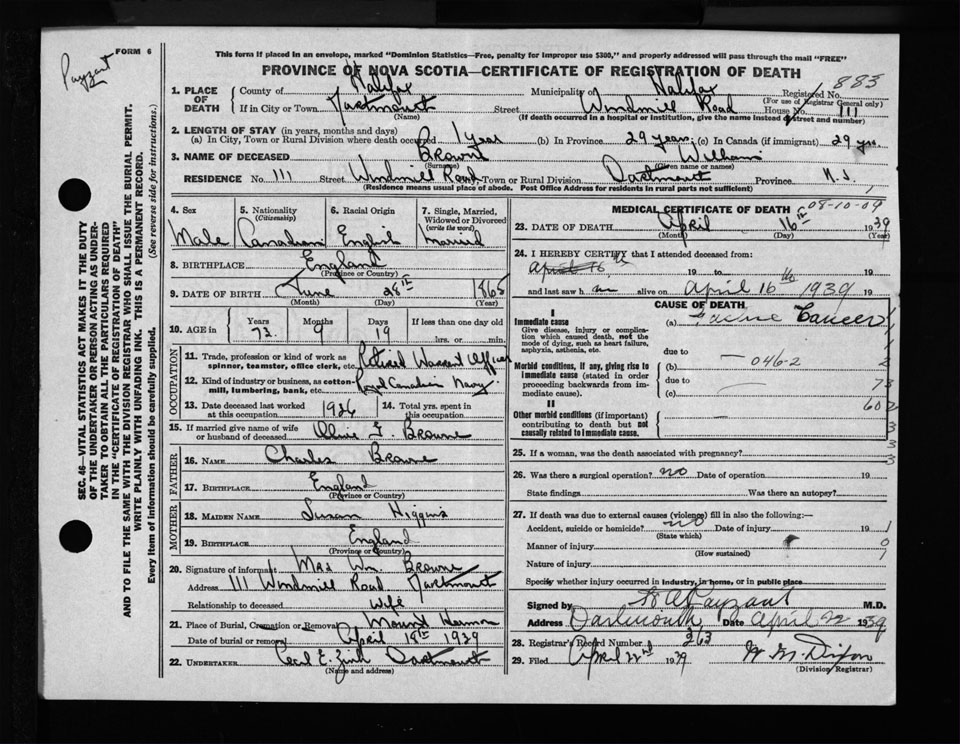 FORM 6
Payzant
This form if placed in an envelope, marked "Dominion Statistics—Free, penalty for improper use $300," and properly addressed will pass through the mail "FREE"
PROVINCE OF NOVA SCOTIA—CERTIFICATE OF REGISTRATION OF DEATH
883
1. PLACE OF DEATH County of Halifax Municipality of Halifax Registered No.
(For use of Registrar General only)
If in City or Town Dartmouth Street Windmill Road House No. 111
(Name) (If death occurred in a hospital or institution, give the name instead of street and number)
2. LENGTH OF STAY (in years, months and days)
(a) In City, Town or Rural Division where death occurred 1 year (b) In Province 29 years (c) In Canada (if immigrant) 29 yrs.
3. NAME OF DECEASED Browne William
(Surname) (Given name or names)
RESIDENCE No. 111 Street Windmill Road Town or Rural Division Dartmouth Province N.S.
(Residence means usual place of abode. Post Office Address for residents in rural parts not sufficient)
4. Sex 5. Nationality (Citizenship) 6. Racial Origin 7. Single, Married, Widowed or Divorced (write the word)
Male Canadian English Married
8. BIRTHPLACE England
(Province or Country)
9. DATE OF BIRTH June 28th 1865
(Month) (Day) (Year)
10. AGE in Years Months Days If less than one day old
73 9 19 hrs. or min.
OCCUPATION
11. Trade, profession or kind of work as spinner, teamster, office clerk, etc. Retired Warrant Officer
12. Kind of industry or business, as cotton-mill, lumbering, bank, etc. Royal Canadian Navy
13. Date deceased last worked at this occupation 1926 14. Total yrs. spent in this occupation
15. If married give name of wife or husband of deceased Browne
FATHER
16. NAME Charles Browne
17. BIRTHPLACE England
(Province or Country)
MOTHER
18. MAIDEN NAME Susan Higgins
19. BIRTHPLACE England
(Province or Country)
20. Signature of informant Mrs Wm. Browne
Address 111 Windmill Road Dartmouth
Relationship to deceased Wife
21. Place of Burial, Cremation or Removal Mount Hermon
Date of burial or removal April 18th 1939
22. UNDERTAKER Cecil E. Zink Dartmouth
(Name and address)
MEDICAL CERTIFICATE OF DEATH 08-10-09
23. DATE OF DEATH April 16th 1939
(Month) (Day) (Year)
24. I HEREBY CERTIFY that I attended deceased from:
April 16th 19 to 19
and last saw h m alive on April 16th 1939 19
CAUSE OF DEATH
I
Immediate cause (a) Cancer
Give disease, injury or complication which caused death, not the mode of dying, such as heart failure, asphyxia, asthenia, etc.
due to
Morbid conditions, if any, giving rise to immediate cause (stated in order proceeding backwards from immediate cause). (b) 046-2
due to
(c)
73
602
II
Other morbid conditions (if important) contributing to death but not causally related to immediate cause.
25. If a woman, was the death associated with pregnancy?
26. Was there a surgical operation? no Date of operation 19
State findings Was there an autopsy?
27. If death was due to external causes (violence) fill in also the following:—
Accident, suicide or homicide? no Date of injury 19
(State which)
Manner of injury
(How sustained)
Nature of injury
Specify whether injury occurred in industry, in home, or in public place
Signed by Payzant M.D.
Address Dartmouth Date April 22 1939
28. Registrar's Record Number 263
29. Filed April 22nd 1939 Dixon
(Division Registrar)
SEC. 46—VITAL STATISTICS ACT MAKES IT THE DUTY
OF THE UNDERTAKER OR PERSON ACTING AS UNDER-
TAKER TO OBTAIN ALL THE PARTICULARS REQUIRED
IN THE "CERTIFICATE OF REGISTRATION OF DEATH"
AND TO FILE THE SAME WITH THE DIVISION REGISTRAR WHO SHALL ISSUE THE BURIAL PERMIT.
WRITE PLAINLY WITH UNFADING INK. THIS IS A PERMANENT RECORD.
Every item of information should be carefully supplied. (See reverse side for instructions.)